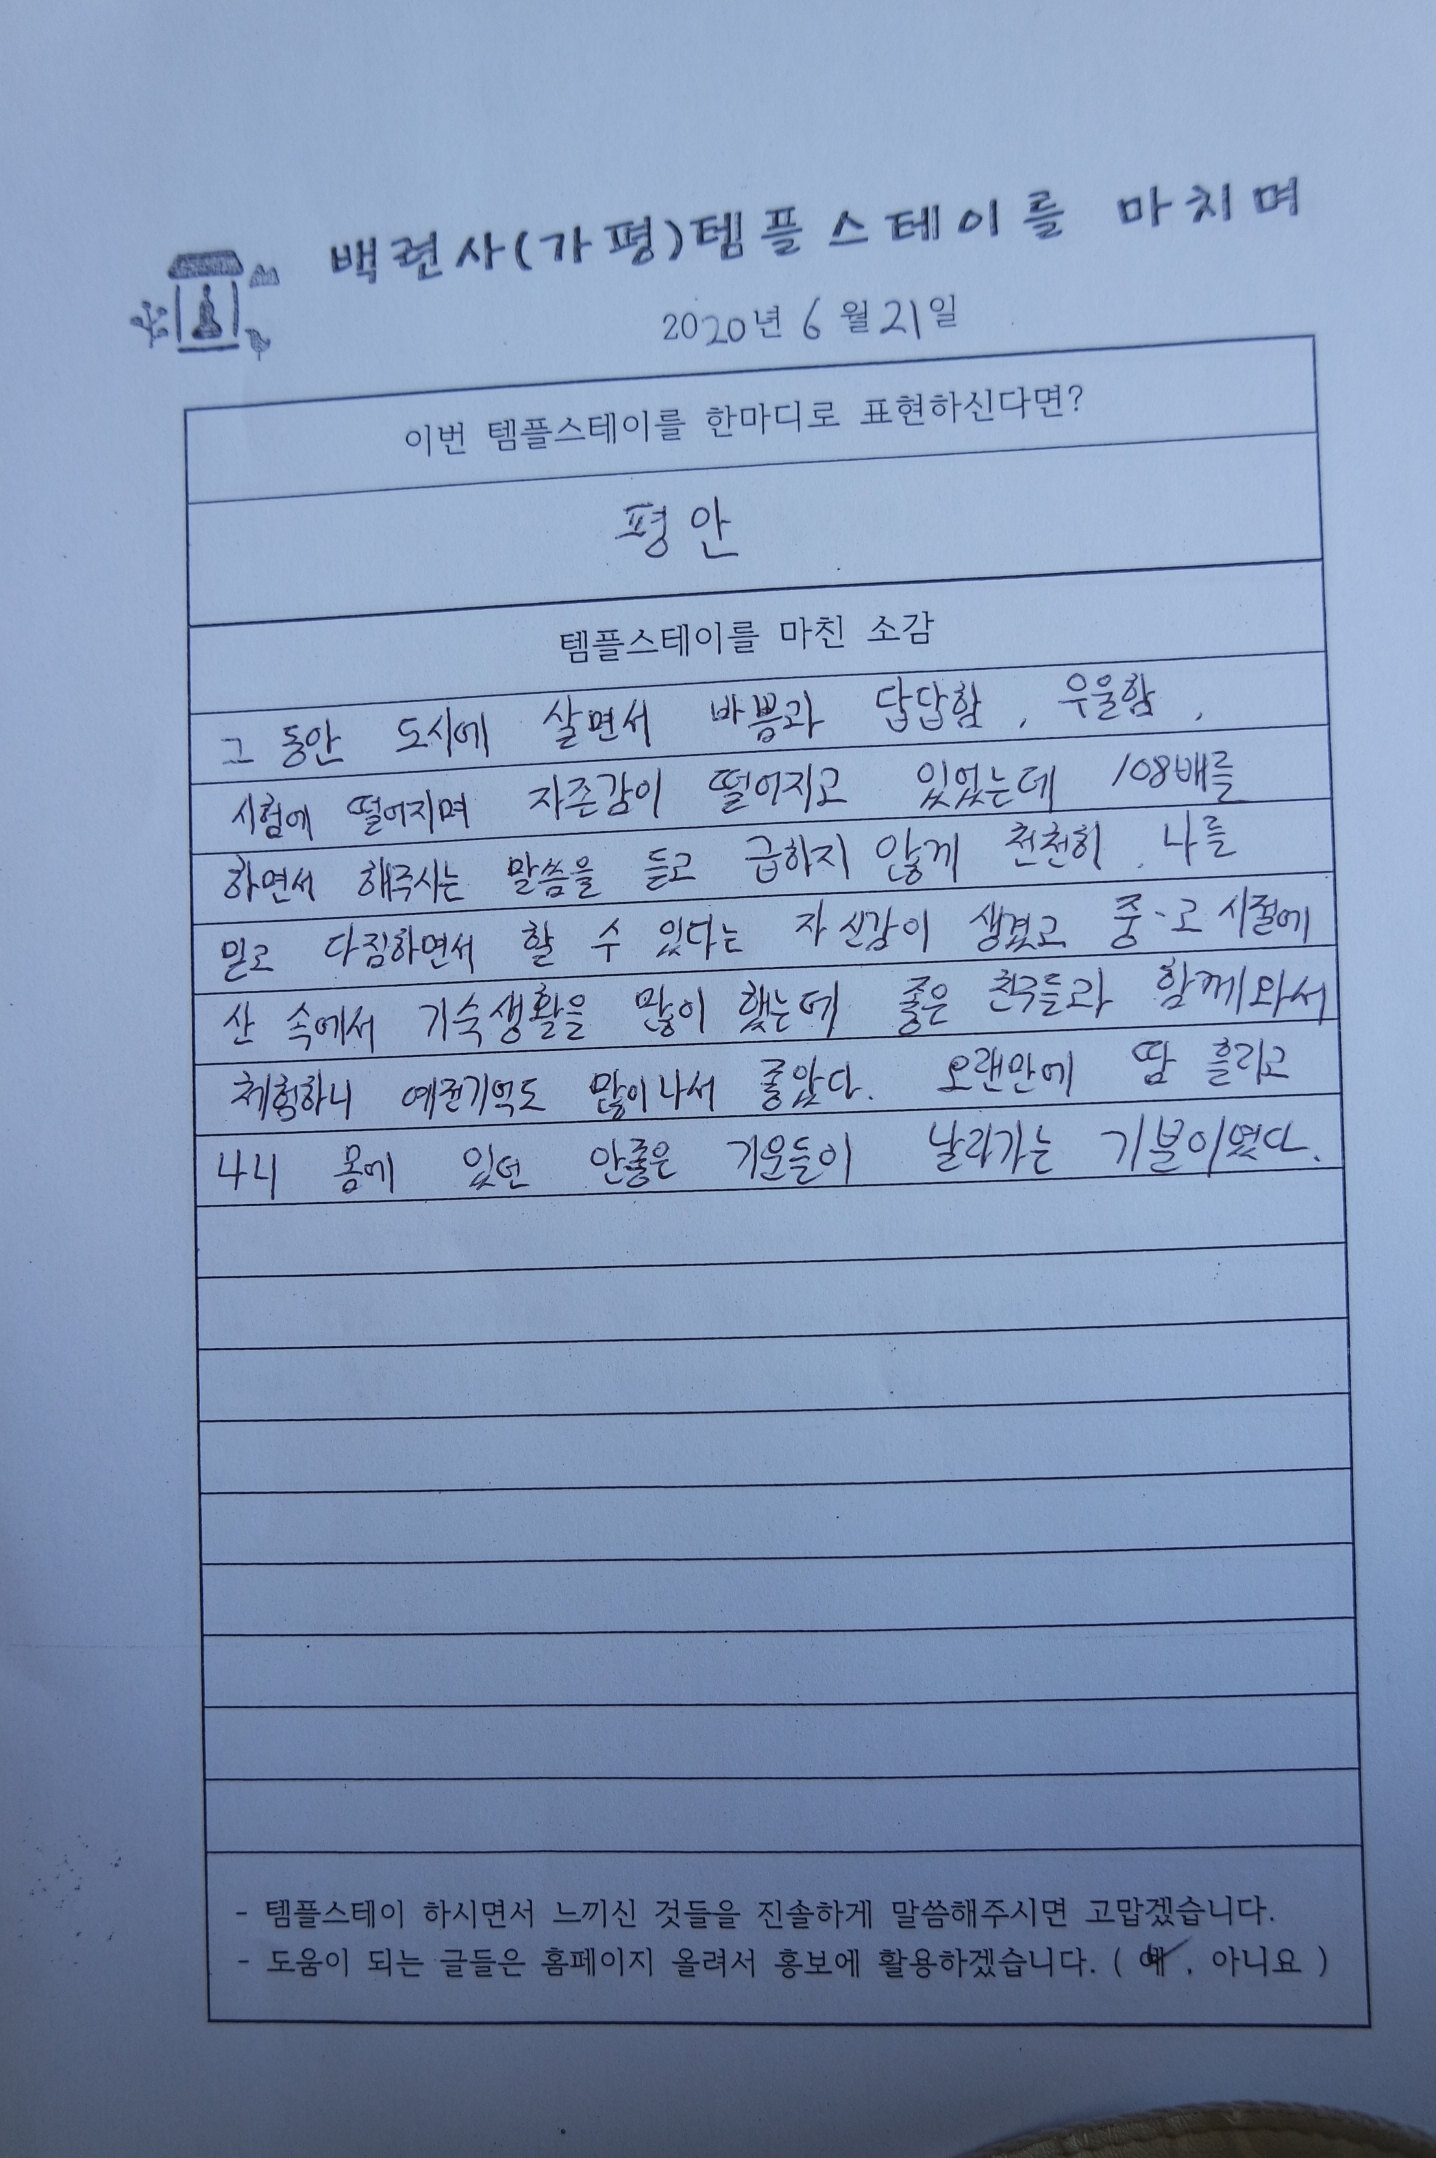 백련사(가평)템플스테이를 마치며
2020년 6월 21일
이번 템플스테이를 한마디로 표현하신다면?
평안
템플스테이를 마친 소감
그 동안 도시에 살면서 바쁨과 답답함, 우울함,
시험에 떨어지며 자존감이 떨어지고 있었는데 108배를
하면서 해주시는 말씀을 듣고 급하지 않게 천천히 나를
믿고 다짐하면서 할 수 있다는 자신감이 생겼고 중·고 시절에
산 속에서 기숙생활을 많이 했는데 좋은 친구들과 함께와서
체험하니 예전기억도 많이나서 좋았다. 오랜만에 땀 흘리고
나니 몸에 있던 안좋은 기운들이 날라가는 기분이였다.
- 템플스테이 하시면서 느끼신 것들을 진솔하게 말씀해주시면 고맙겠습니다.
- 도움이 되는 글들은 홈페이지 올려서 홍보에 활용하겠습니다. ( 예 , 아니요 )